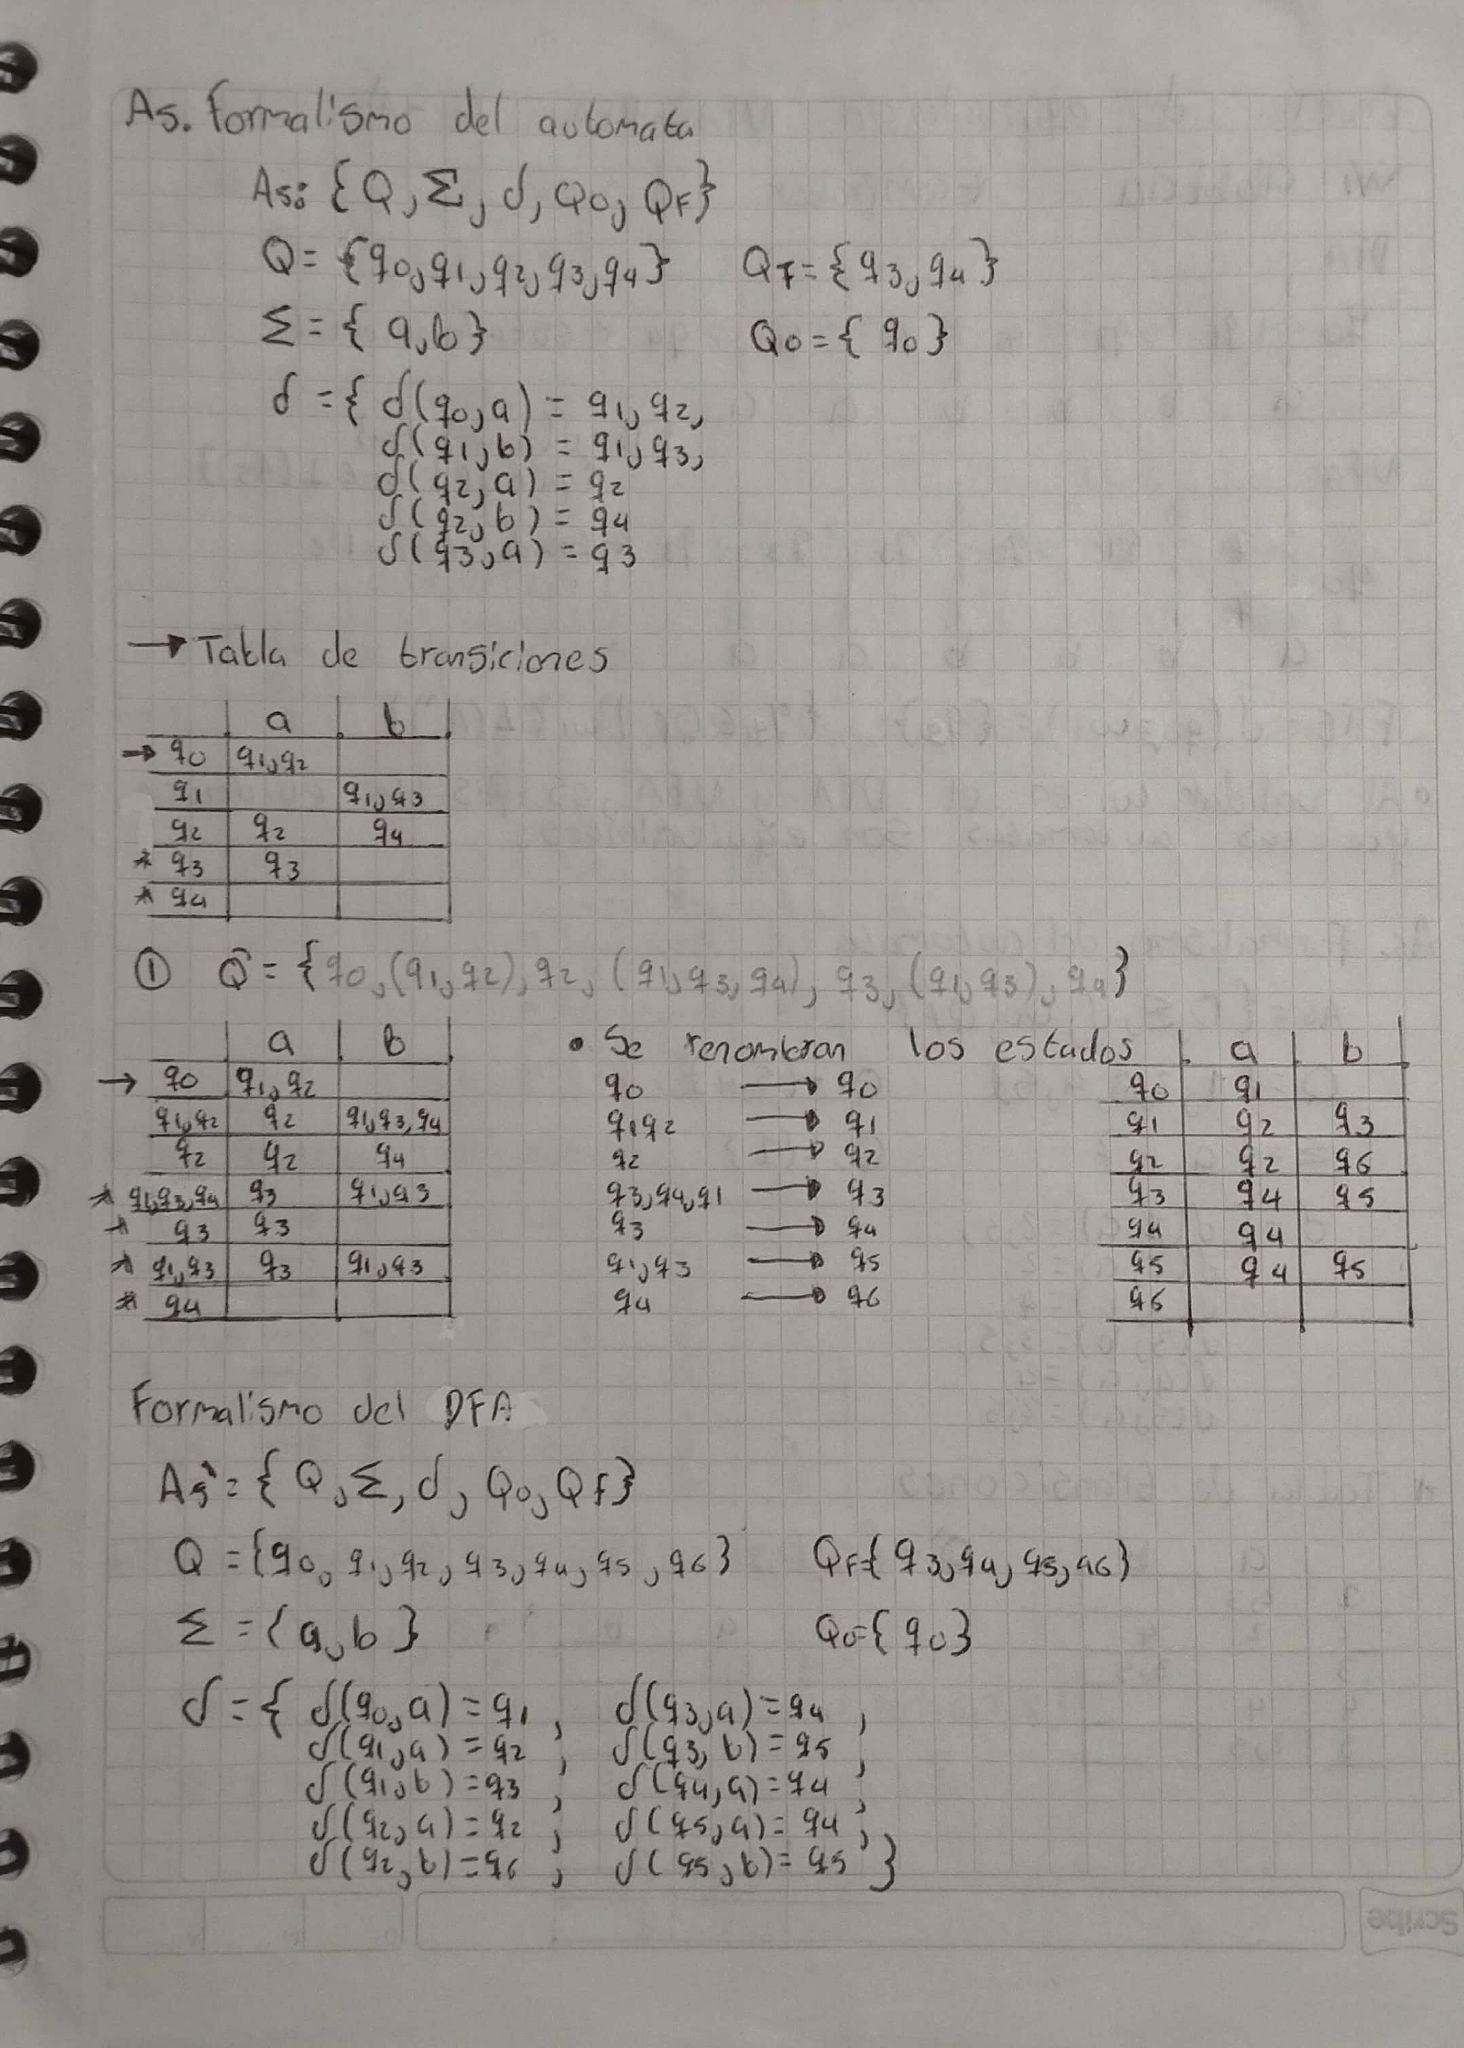 As. Formalismo del automata
As: {Q, Σ, δ, Q0, QF}
Q = {q0, q1, q2, q3, q4} QF = {q3, q4}
Σ = {a, b} Q0 = {q0}
δ = { δ(q0, a) = q1, q2,
δ(q1, b) = q1, q3,
δ(q2, a) = q2
δ(q2, b) = q4
δ(q3, a) = q3
→ Tabla de transiciones
a b
→ q0 q1, q2
q1 q1, q3
q2 q2 q4
* q3 q3
* q4
① Q̂ = {q0, (q1, q2), q2, (q1, q3, q4), q3, (q1, q3), q4}
a b
→ q0 q1, q2
q1, q2 q2 q1, q3, q4
q2 q2 q4
* q1, q3, q4 q3 q1, q3
* q3 q3
* q1, q3 q3 q1, q3
* q4
• Se renombran los estados
q0 → q0
q1q2 → q1
q2 → q2
q3, q4, q1 → q3
q3 → q4
q1, q3 → q5
q4 → q6
a b
q0 q1
q1 q2 q3
q2 q2 q6
q3 q4 q5
q4 q4
q5 q4 q5
q6
Formalismo del DFA
As` = {Q, Σ, δ, Q0, QF}
Q = {q0, q1, q2, q3, q4, q5, q6} QF={q3, q4, q5, q6}
Σ = {a, b} Q0={q0}
δ = { δ(q0, a) = q1, δ(q3, a) = q4,
δ(q1, a) = q2, δ(q3, b) = q5,
δ(q1, b) = q3, δ(q4, a) = q4,
δ(q2, a) = q2, δ(q5, a) = q4,
δ(q2, b) = q6, δ(q5, b) = q5 }
Scribe